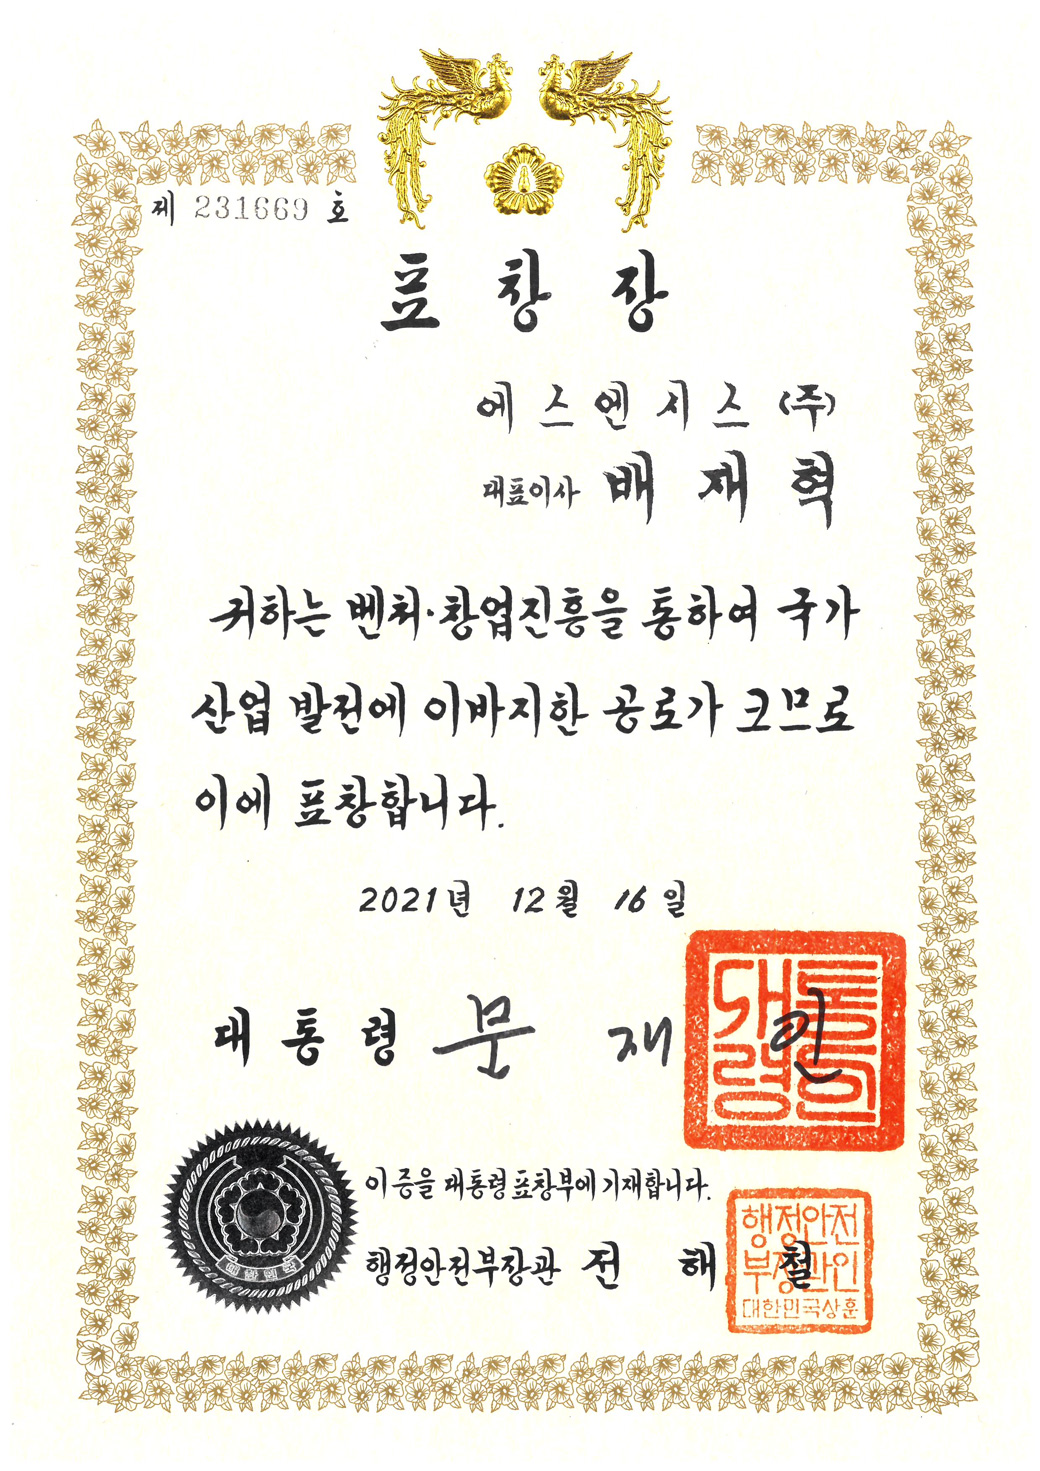 제 231669 호
표 창 장
에 스 엔 시 스 (주)
대표이사 배 재 혁
귀하는 벤처·창업진흥을 통하여 국가
산업 발전에 이바지한 공로가 크므로
이에 표창합니다.
2021년 12월 16일
대 통 령 문 재 인
대통령의
이 증을 대통령 표창부에 기재합니다.
행정안전부장관 전 해 철
행정안전
부장관인
대한민국상훈